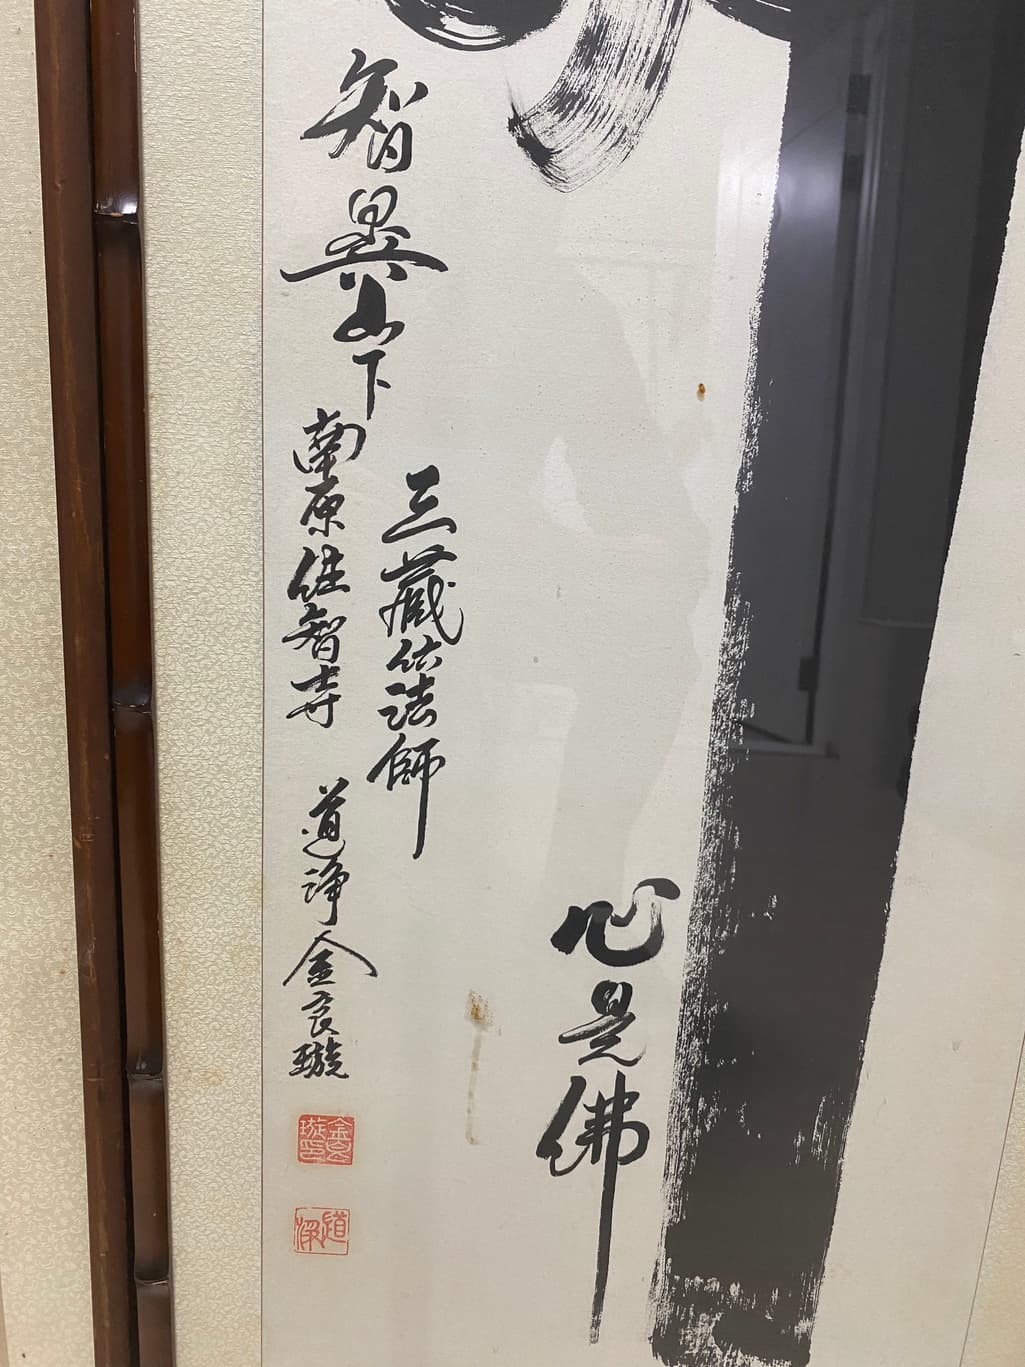 心是佛
三藏法師
智異山下 南原佳智寺 道淨 金良璇
金良璇印
道淨